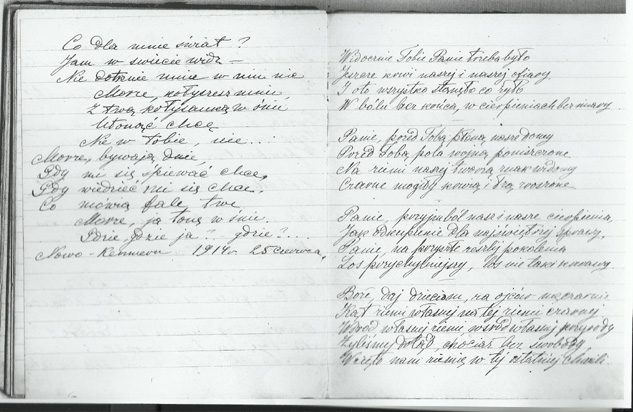 Co dla mnie świat?
Jam w świecie widz –
Nie dotknie mnie w nim nic
Morze, kołyszesz mnie
Z twą kołysanką w śnie
Utonąć chcę
Nie w tobie, nie...
Morze, bywają dnie,
Gdy mi się śpiewać chce,
Gdy wiedzieć mi się chce.
Co mówią fale twe
Morze, ja tonę w śnie.
Gdzie gdzie ja? gdzie?...
Nowo-Kemmern 1914 r. 25 czerwca,
Widocznie Tobie Panie trzeba było
Jeszcze krwi naszej i naszej ofiary
I oto wszystko stanęło co żyło
W bólu bez końca, w cierpieniach bez miary
Panie, przed Tobą płoną nasze domy
Przed Tobą pola wojną poniszczone
Na ziemi naszej tworzą znak widomy
Czarne mogiły krwią i łzą zroszone
Panie, przyjm ból nasz i nasze cierpienia
Jako odkupienie dla najświętszej sprawy
Panie, na przyszłe ześlij pokolenia
Los przychylniejszy, los nie tak krwawy.
Boże, daj dzieciom, za ojców męczarnie
Kąt ziemi własnej na tej ziemi czarnej
Wśród własnej ziemi, wśród własnej przyrody
Żyliśmy dotąd, chociaż bez swobody,
nam w tej ostatniej chwili